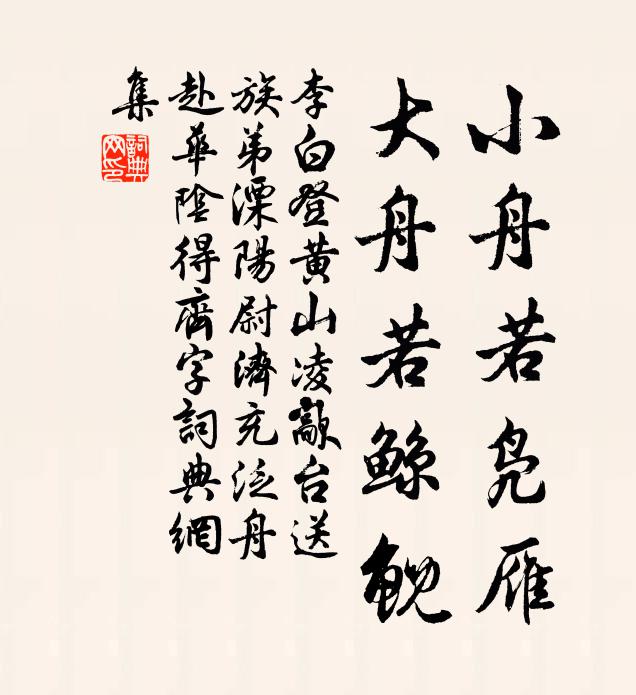 小舟若鳧雁
大舟若鯨鯢
李白登黃山凌歊台送
族弟溧陽尉濟充泛舟
赴華陰得齊字詞典網
集
詞典
網印